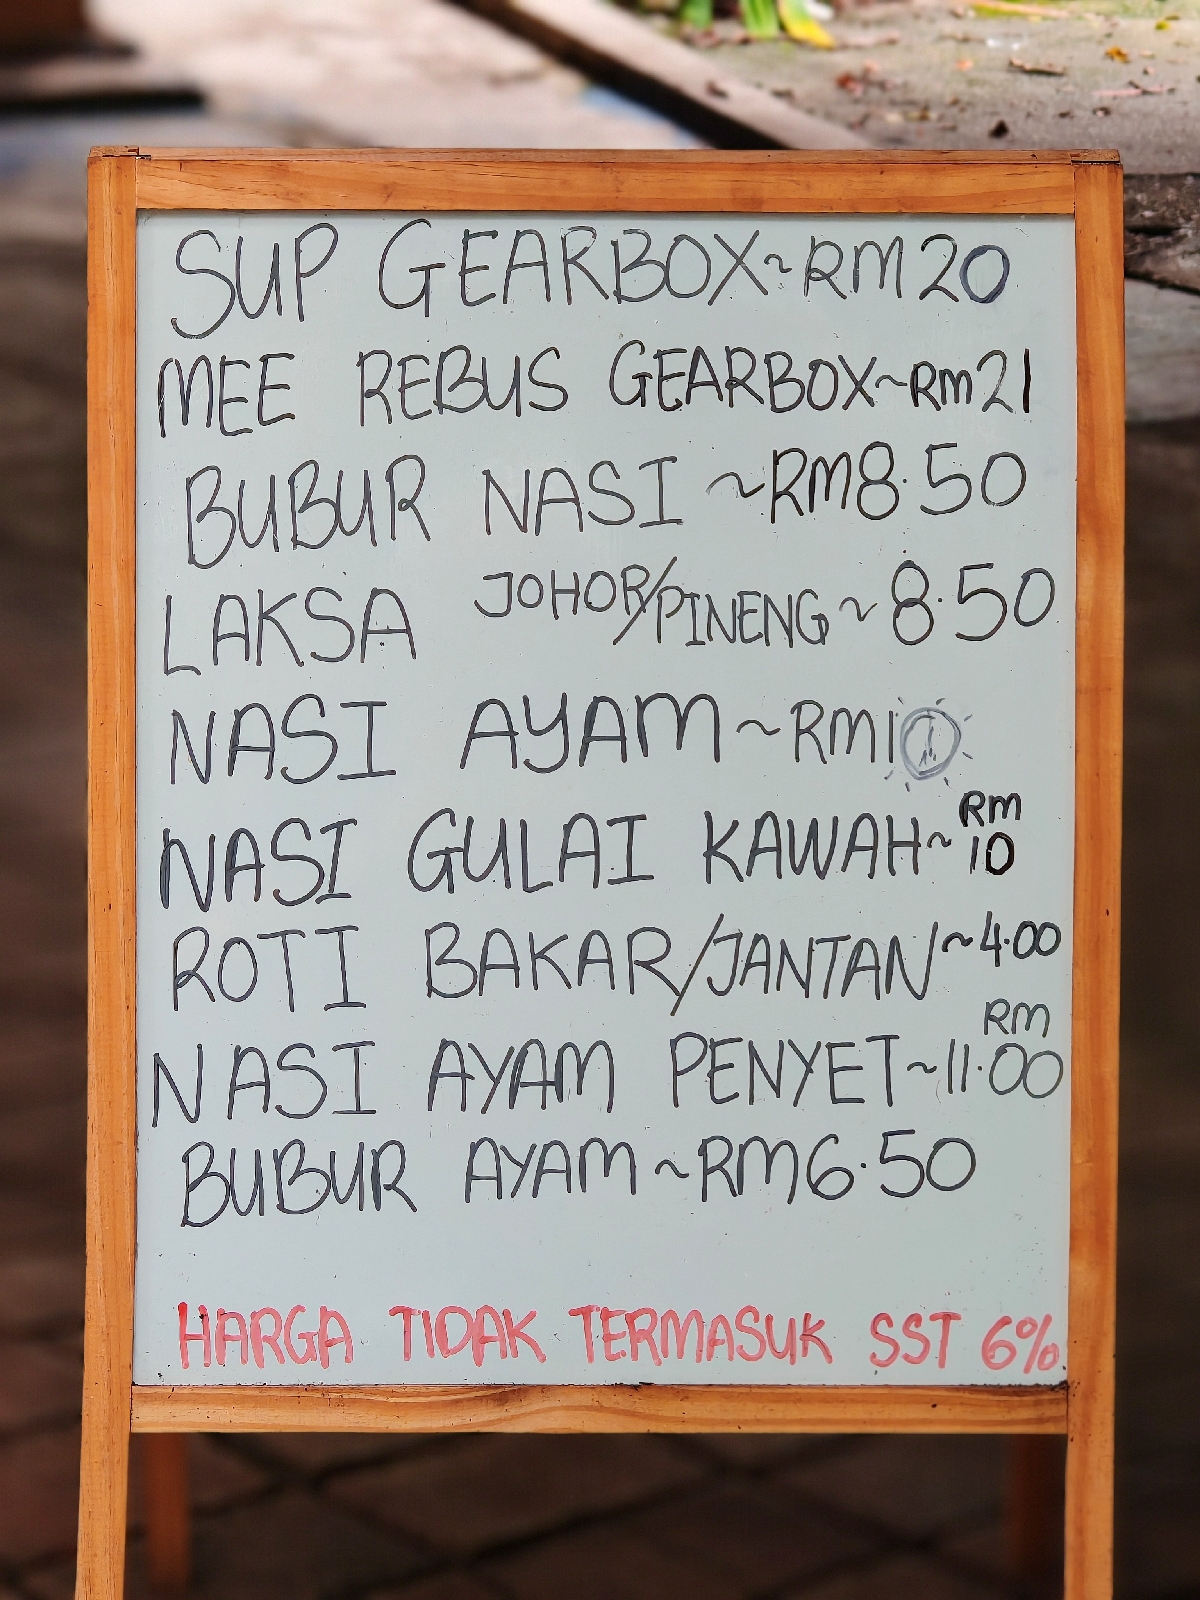 SUP GEARBOX~RM20
MEE REBUS GEARBOX~RM21
BUBUR NASI ~RM8.50
LAKSA JOHOR/PINENG ~ 8.50
NASI AYAM ~RM10
NASI GULAI KAWAH~ RM 10
ROTI BAKAR/JANTAN ~4.00
NASI AYAM PENYET~ RM 11.00
BUBUR AYAM ~RM6.50
HARGA TIDAK TERMASUK SST 6%